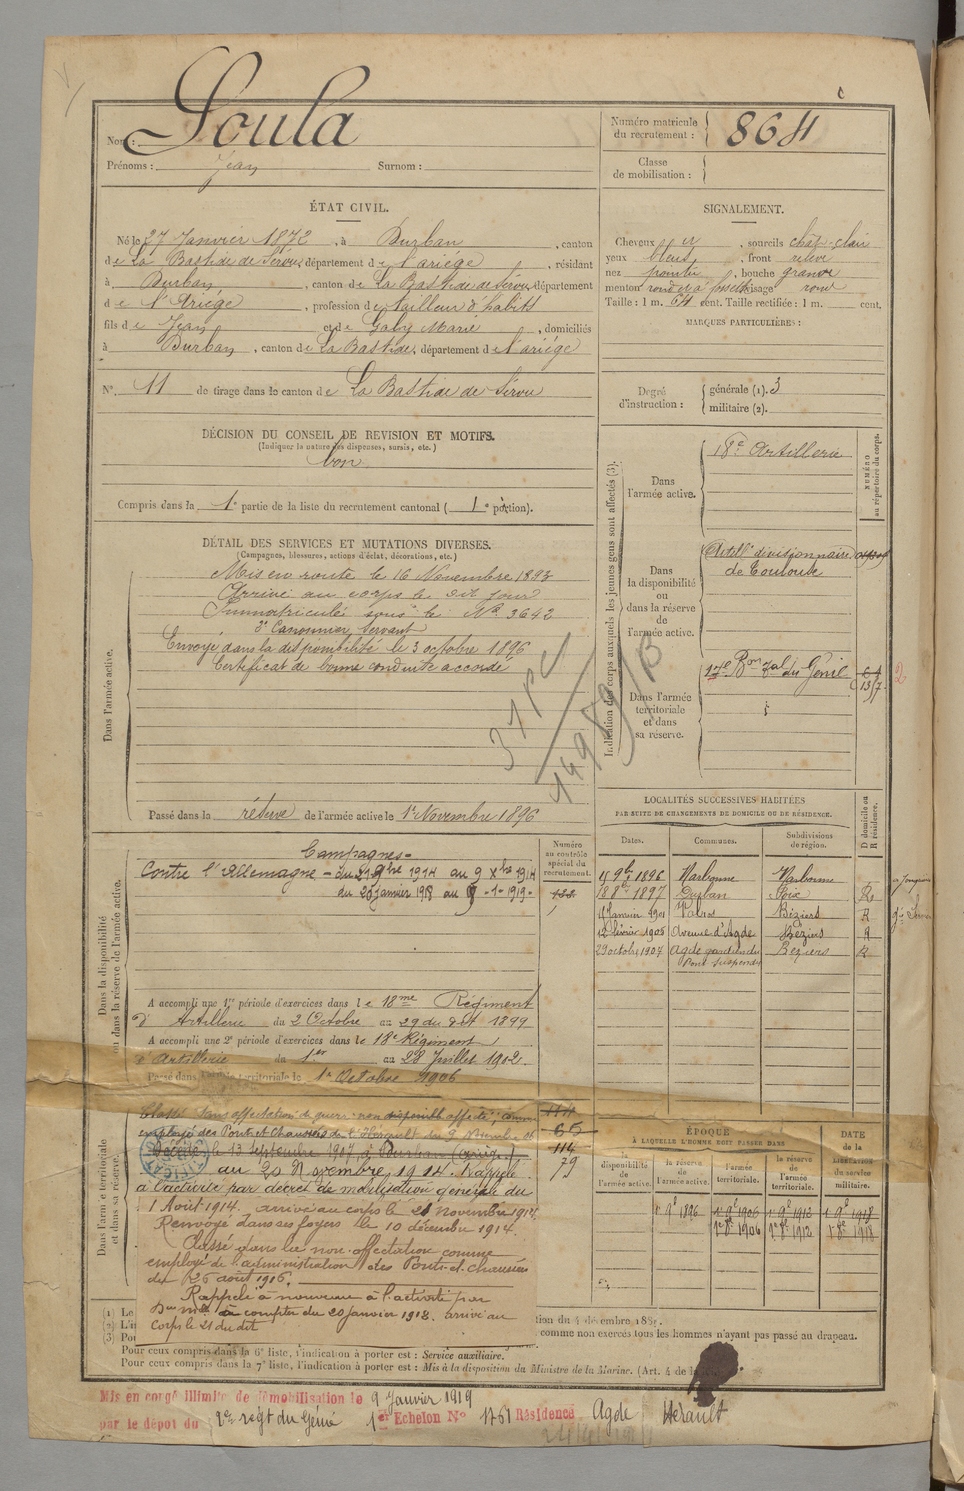 Nom : Soula
Prénoms : Jean Surnom :
Numéro matricule du recrutement : 864
Classe de mobilisation :
ÉTAT CIVIL.
Né le 27 Janvier 1872, à Durban, canton
de La Bastide de Sérou, département de l'ariège, résidant
à Durban, canton de La Bastide de Sérou, département
de l'Ariége, profession de tailleur d'habits
fils de Jean et de Galy Marie, domiciliés
à Durban, canton de La Bastide, département de l'ariége
N° 11 de tirage dans le canton de La Bastide de Sérou
SIGNALEMENT.
Cheveux et, sourcils chât-clair
yeux bleus, front relevé
nez pointu, bouche grande
menton rond et à fossette visage rond
Taille : 1 m. 64 cent. Taille rectifiée : 1 m. cent.
MARQUES PARTICULIÈRES :
Degré d'instruction : générale (1). 3
militaire (2).
DÉCISION DU CONSEIL DE REVISION ET MOTIFS.
(Indiquer la nature des dispenses, sursis, etc.)
bon
Compris dans la 1e partie de la liste du recrutement cantonal ( 1e portion).
DÉTAIL DES SERVICES ET MUTATIONS DIVERSES.
(Campagnes, blessures, actions d'éclat, décorations, etc.)
Dans l'armée active.
Mis en route le 16 Novembre 1893
Arrivé au corps le dit jour
Immatriculé sous le N° 3642
2e Canonnier Servant
Envoyé dans la disponibilité le 3 octobre 1896
Certificat de bonne conduite accordé
Passé dans la réserve de l'armée active le 1er Novembre 1896
Indication des corps auxquels les jeunes gens sont affectés (3).
NUMÉRO au répertoire du corps.
Dans l'armée active.
18e Artillerie
Dans la disponibilité ou dans la réserve de l'armée active.
Artill divisionnaire
de Toulouse
Dans l'armée territoriale et dans sa réserve.
17e Bon tal du Génie
13/7
2
LOCALITÉS SUCCESSIVES HABITÉES
PAR SUITE DE CHANGEMENTS DE DOMICILE OU DE RÉSIDENCE.
D domicile ou R résidence.
Dates. Communes. Subdivisions de région.
9bre 1896 Narbonne Narbonne
18 8bre 1897 Durban Foix R
Janvier 1901 Valros Béziers R
12 février 1906 Avenue d'Agde Béziers R
29 octobre 1907 Agde gardien du Pont suspendu Béziers R
Dans la disponibilité ou dans la réserve de l'armée active.
Numéro au contrôle spécial du recrutement.
Campagnes
Contre l'Allemagne - du 21 9bre 1914 au 9 Xbre 1914
du 20 janvier 1918 au 9-1-1919-
A accompli une 1re période d'exercices dans le 18me Régiment
d'Artillerie du 2 Octobre au 29 du dit 1899
A accompli une 2e période d'exercices dans le 18e Régiment
d'Artillerie du 1er au 28 Juillet 1902
Passé dans l'armée territoriale le 1er Octobre 1906
Dans l'armée territoriale et dans sa réserve.
Classé sans affectation de guerre non disponible affecté, comme
employé des Ponts et Chaussées de l'Hérault du 9 Novembre
Décédé le 13 septembre 1907, à Durban (Ariège)
au 20 Novembre 1914. Rappelé
à l'activité par décret de mobilisation générale du
1 Août 1914. arrivé au corps le 21 novembre 1914.
Renvoyé dans ses foyers le 10 décembre 1914.
Classé dans la non-affectation comme
employé de l'administration des Ponts et chaussées
du 26 août 1916.
Rappelé à nouveau à l'activité par
à compter du 20 janvier 1918. arrivé au
Corps le 21 du dit
65
114
79
ÉPOQUE
À LAQUELLE L'HOMME DOIT PASSER DANS
DATE de la LIBÉRATION du service militaire.
la disponibilité de l'armée active.
la réserve de l'armée active.
l'armée territoriale.
la réserve de l'armée territoriale.
1er 9e 1896 1er 9e 1906 1er 9e 1912 1er 9e 1918
1er 8e 1906 1er 8e 1912 1er 8e 1918
(1) Le
(2) L'i
(3) Pou
tion du 4 décembre 1889.
comme non exercés tous les hommes n'ayant pas passé au drapeau.
Pour ceux compris dans la 6e liste, l'indication à porter est : Service auxiliaire.
Pour ceux compris dans la 7e liste, l'indication à porter est : Mis à la disposition du Ministre de la Marine. (Art. 4 de la
Mis en congé illimité de démobilisation le 9 Janvier 1919
par le dépôt du 2e régt du Génie 1er Echelon N° 1761 Résidence Agde Hérault